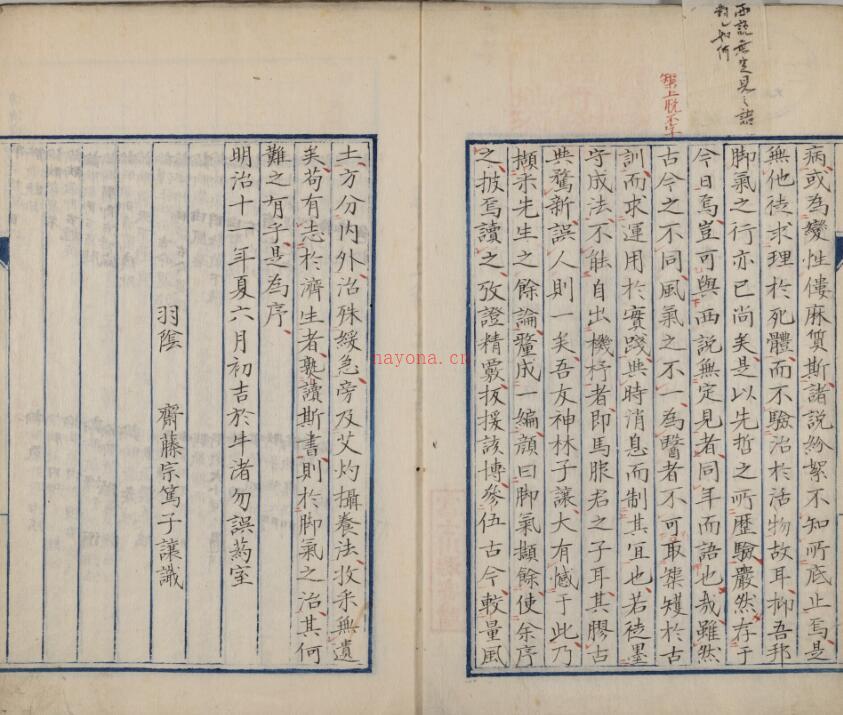 西説無定見之語
病或為變性僂麻質斯諸説紛絮不知所底止焉是
無他徒求理於死體而不驗治於活物故耳抑吾邦
脚氣之行亦已尚矣是以先哲之所歴驗嚴然存于
今日焉豈可與西説無定見者同年而語也哉雖然
古今之不同風氣之不一為醫者不可取榘矱於古
訓而求運用於實踐與時消息而制其宜也若徒墨
守成法不能自出機杼者即馬服君之子耳其膠古
與騖新誤人則一矣吾友神林子讓大有憾于此乃
擷米先生之餘論釐成一編顔曰脚氣擷餘使余序
之披焉讀之攷證精覈援該博參伍古今較量風
土方分内外治殊緩急旁及艾灼攝養法收采無遺
矣苟有志於濟生者熟讀斯書則於脚氣之治其何
難之有乎是為序
明治十一年夏六月初吉於牛渚勿誤葯室
羽陰 齋藤宗篤子讓識
nayona.cn